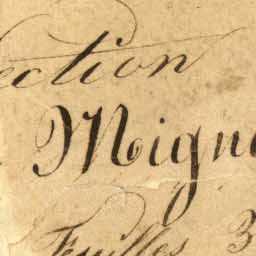 ection
Mign
Feuilles 3